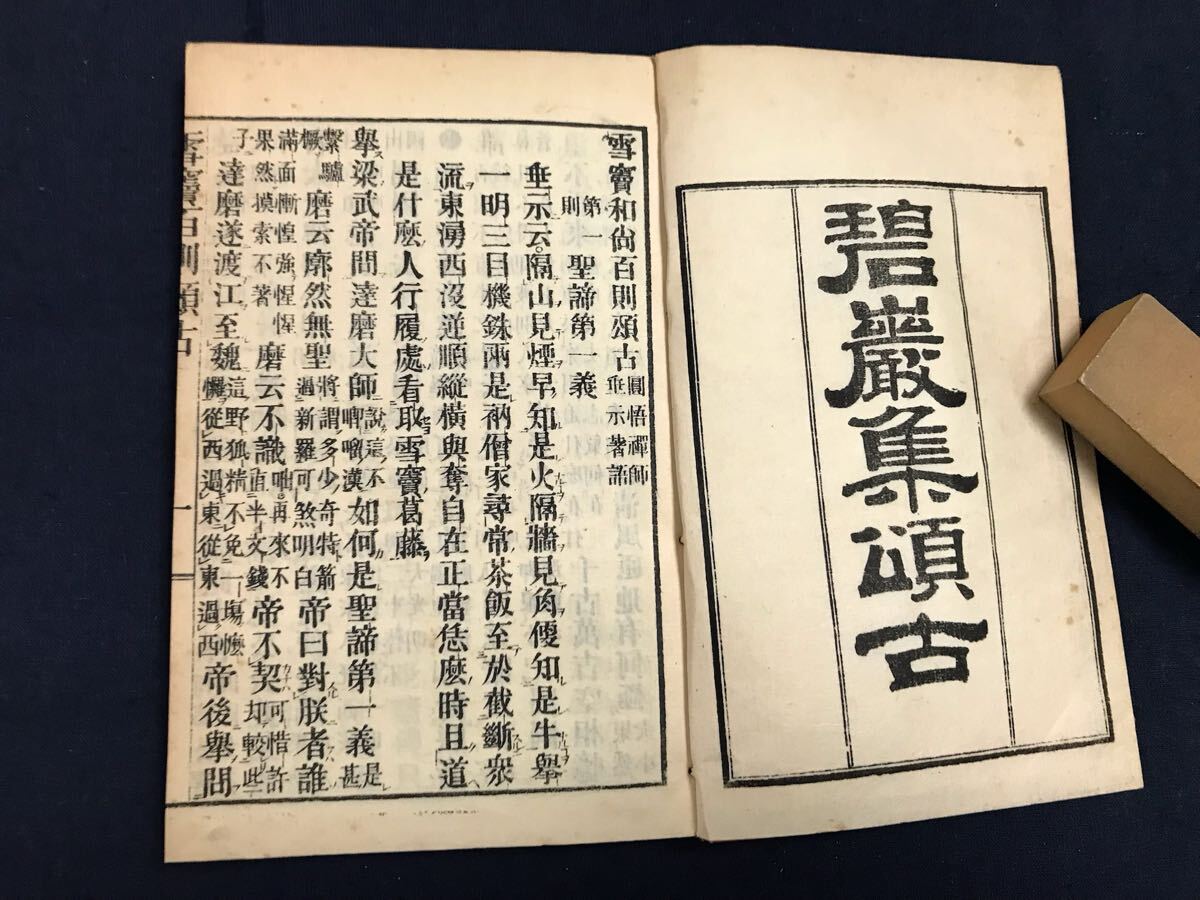 碧巖集頌古
雪竇和尙百則頌古 圜悟禪師垂示著語
第一則 聖諦第一義
垂示云。隔山見煙早知是火隔牆見角便知是牛舉
一明三目機銖兩是衲僧家尋常茶飯至於截斷衆
流東湧西沒逆順縱橫與奪自在正當恁麼時且道
是什麼人行履處看取雪竇葛藤
舉梁武帝問達磨大師 說這不喞𠺕漢 如何是聖諦第一義 是甚
繫驢橛 磨云廓然無聖 將謂多少奇特箭過新羅可煞明白 帝曰對朕者誰
滿面慚惶強惺惺果然摸索不著 磨云不識 咄。再來不直半文錢 帝不契 可惜許却較些
子 達磨遂渡江至魏 這野狐精不免一場懡㦬從西過東從東過西 帝後舉問
雪竇百則頌古 一